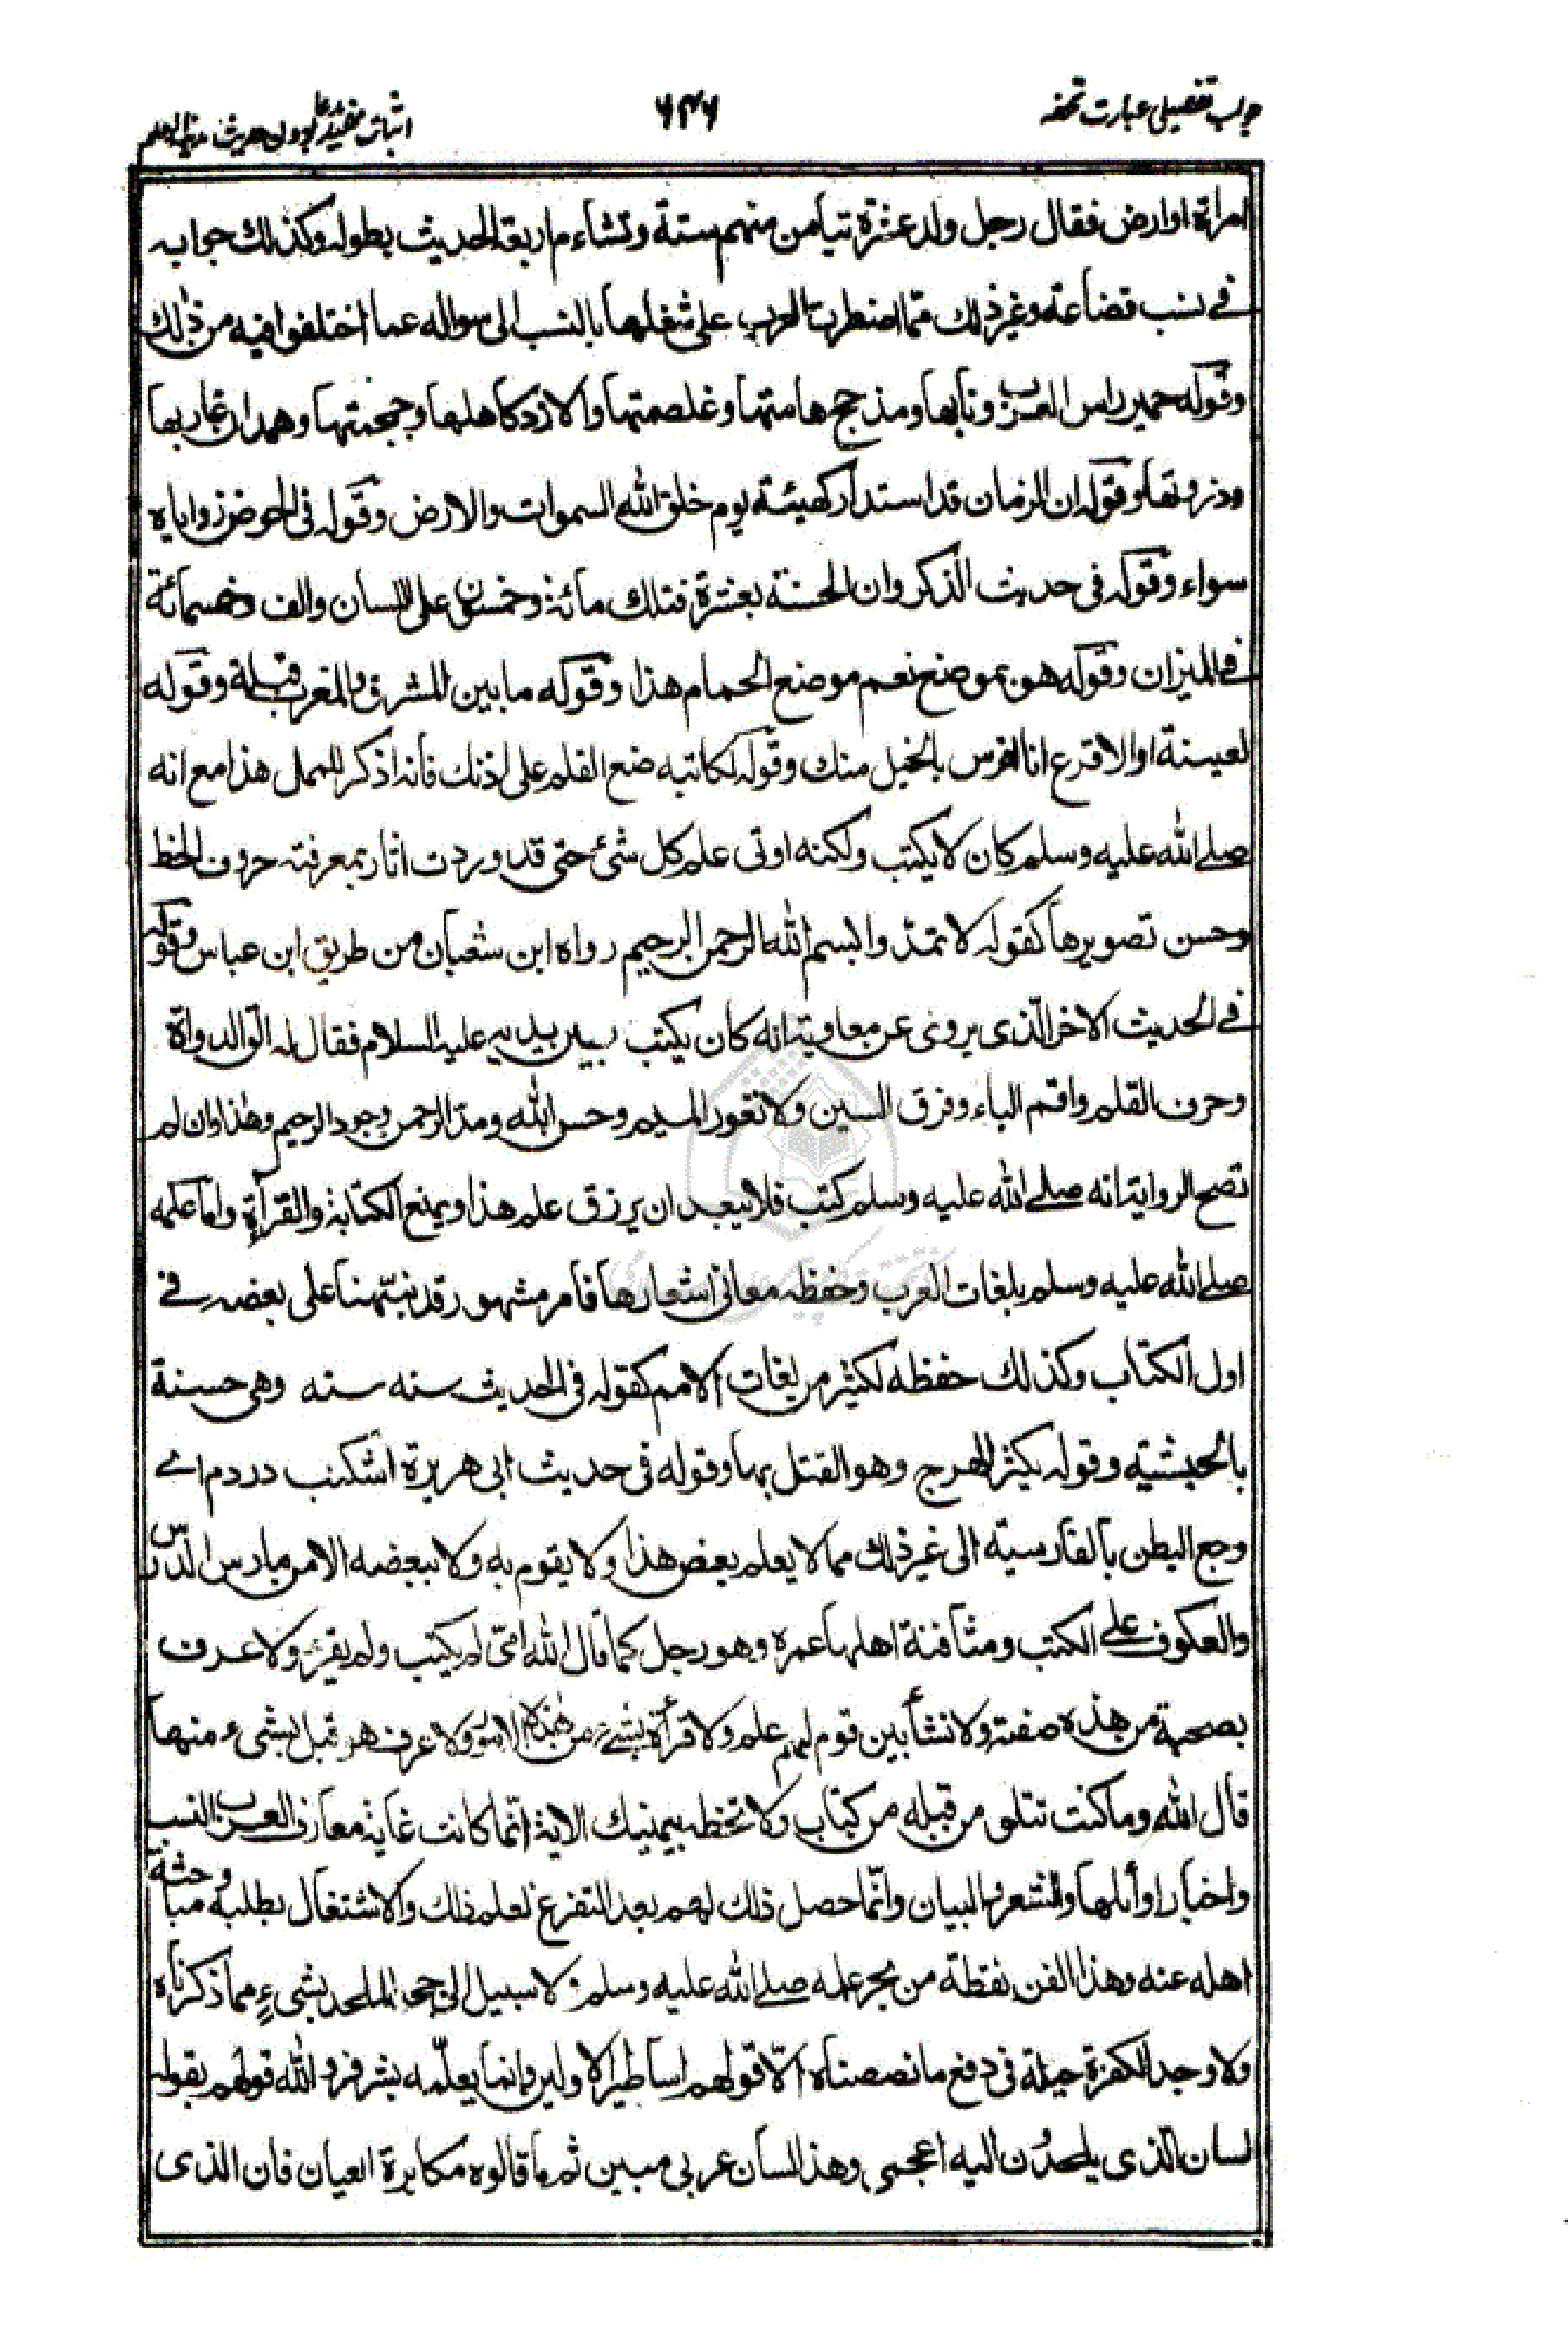 جواب تفصیلی عبارت تحفه
۶۴۶
اثبات مفید مدعا بودن حدیث مدینة العلم
امراة او ارض فقال رجل ولد عشرة تيامن منهم ستة وتشاءم اربعة الحديث بطوله وكذلك جوابه
فے نسب قضاعة وغير ذلك مما اضطربت العرب على شغلها بالنسب الى سواله عما اختلفوا فيه من ذلك
وقوله حمير راس العرب ونابها ومذحج هامتها وغلصمتها والازد كاهلها وجمجمتها وهمدان غاربها
وذروتها وقوله ان الزمان قد استدار كهيئة يوم خلق الله السموات والارض وقوله فى الحوض زواياه
سواء وقوله فى حديث الذكر وان الحسنة بعشرة فتلك مائة وخمسون على اللسان والف وخمسمائة
فے الميزان وقوله هو بموضع نعم موضع الحمام هذا وقوله ما بين المشرق والمغرب قبلة وقوله
لعيينة او الاقرع انا افرس بالخيل منك وقوله لكاتبه ضع القلم على اذنك فانه اذكر للممل هذا مع انه
صلے الله عليه وسلم كان لا يكتب ولكنه اوتى علم كل شئ حتى قد وردت اثار بمعرفته حروف الخط
وحسن تصويرها كقوله لا تمدوا بسم الله الرحمن الرحيم رواه ابن شعبان من طريق ابن عباس وقوله
فے الحديث الاخر الذى يروى عن معاوية انه كان يكتب بين يديه عليه السلام فقال له الق الدواة
وحرف القلم واقم الباء وفرق السين ولا تعور الميم وحسن الله ومد الرحمن وجود الرحيم وهذا وان لم
تصح الرواية انه صلے الله عليه وسلم كتب فلا يبعد ان يرزق علم هذا ويمنع الكتابة والقرآة واما علمه
صلے الله عليه وسلم بلغات العرب وحفظه معانى اشعارها فامر مشهور قد نبهنا على بعضه فے
اول الكتاب وكذلك حفظه لكثير من لغات الامم كقوله فى الحديث سنه سنه وهى حسنة
بالحبشية وقوله يكثر الهرج وهو القتل بها وقوله فى حديث ابى هريرة اشكنب دردم اے
وجع البطن بالفارسية الى غير ذلك مما لا يعلم بعض هذا ولا يقوم به ولا ببعضه الا من مارس الدرس
والعكوف على الكتب ومثافنة اهلها عمره وهو رجل كما قال الله امى لم يكتب ولم يقرء ولا عرف
بصحبة من هذه صفته ولا نشأ بين قوم لهم علم ولا قرأة بشئ من هذه الامور ولا عرف هو قبل بشئ منها
قال الله وما كنت تتلو من قبله من كتاب ولا تخطه بيمينك الاية انما كانت غاية معارف العرب النسب
واخبار اوائلها والشعر والبيان وانما حصل ذلك لهم بعد التفرغ لعلم ذلك والاشتغال بطلبه ومباحثة
اهله عنه وهذا الفن نقطة من بحر علمه صلے الله عليه وسلم ولا سبيل الى جحد الملحد بشئ مما ذكرناه
ولا وجد الكفرة حيلة فى دفع ما نصصناه الا قولهم اساطير الاولين وانما يعلمه بشر فرد الله قولهم بقوله
لسان الذى يلحدون اليه اعجمى وهذا لسان عربى مبين ثم ما قالوه مكابرة العيان فان الذى